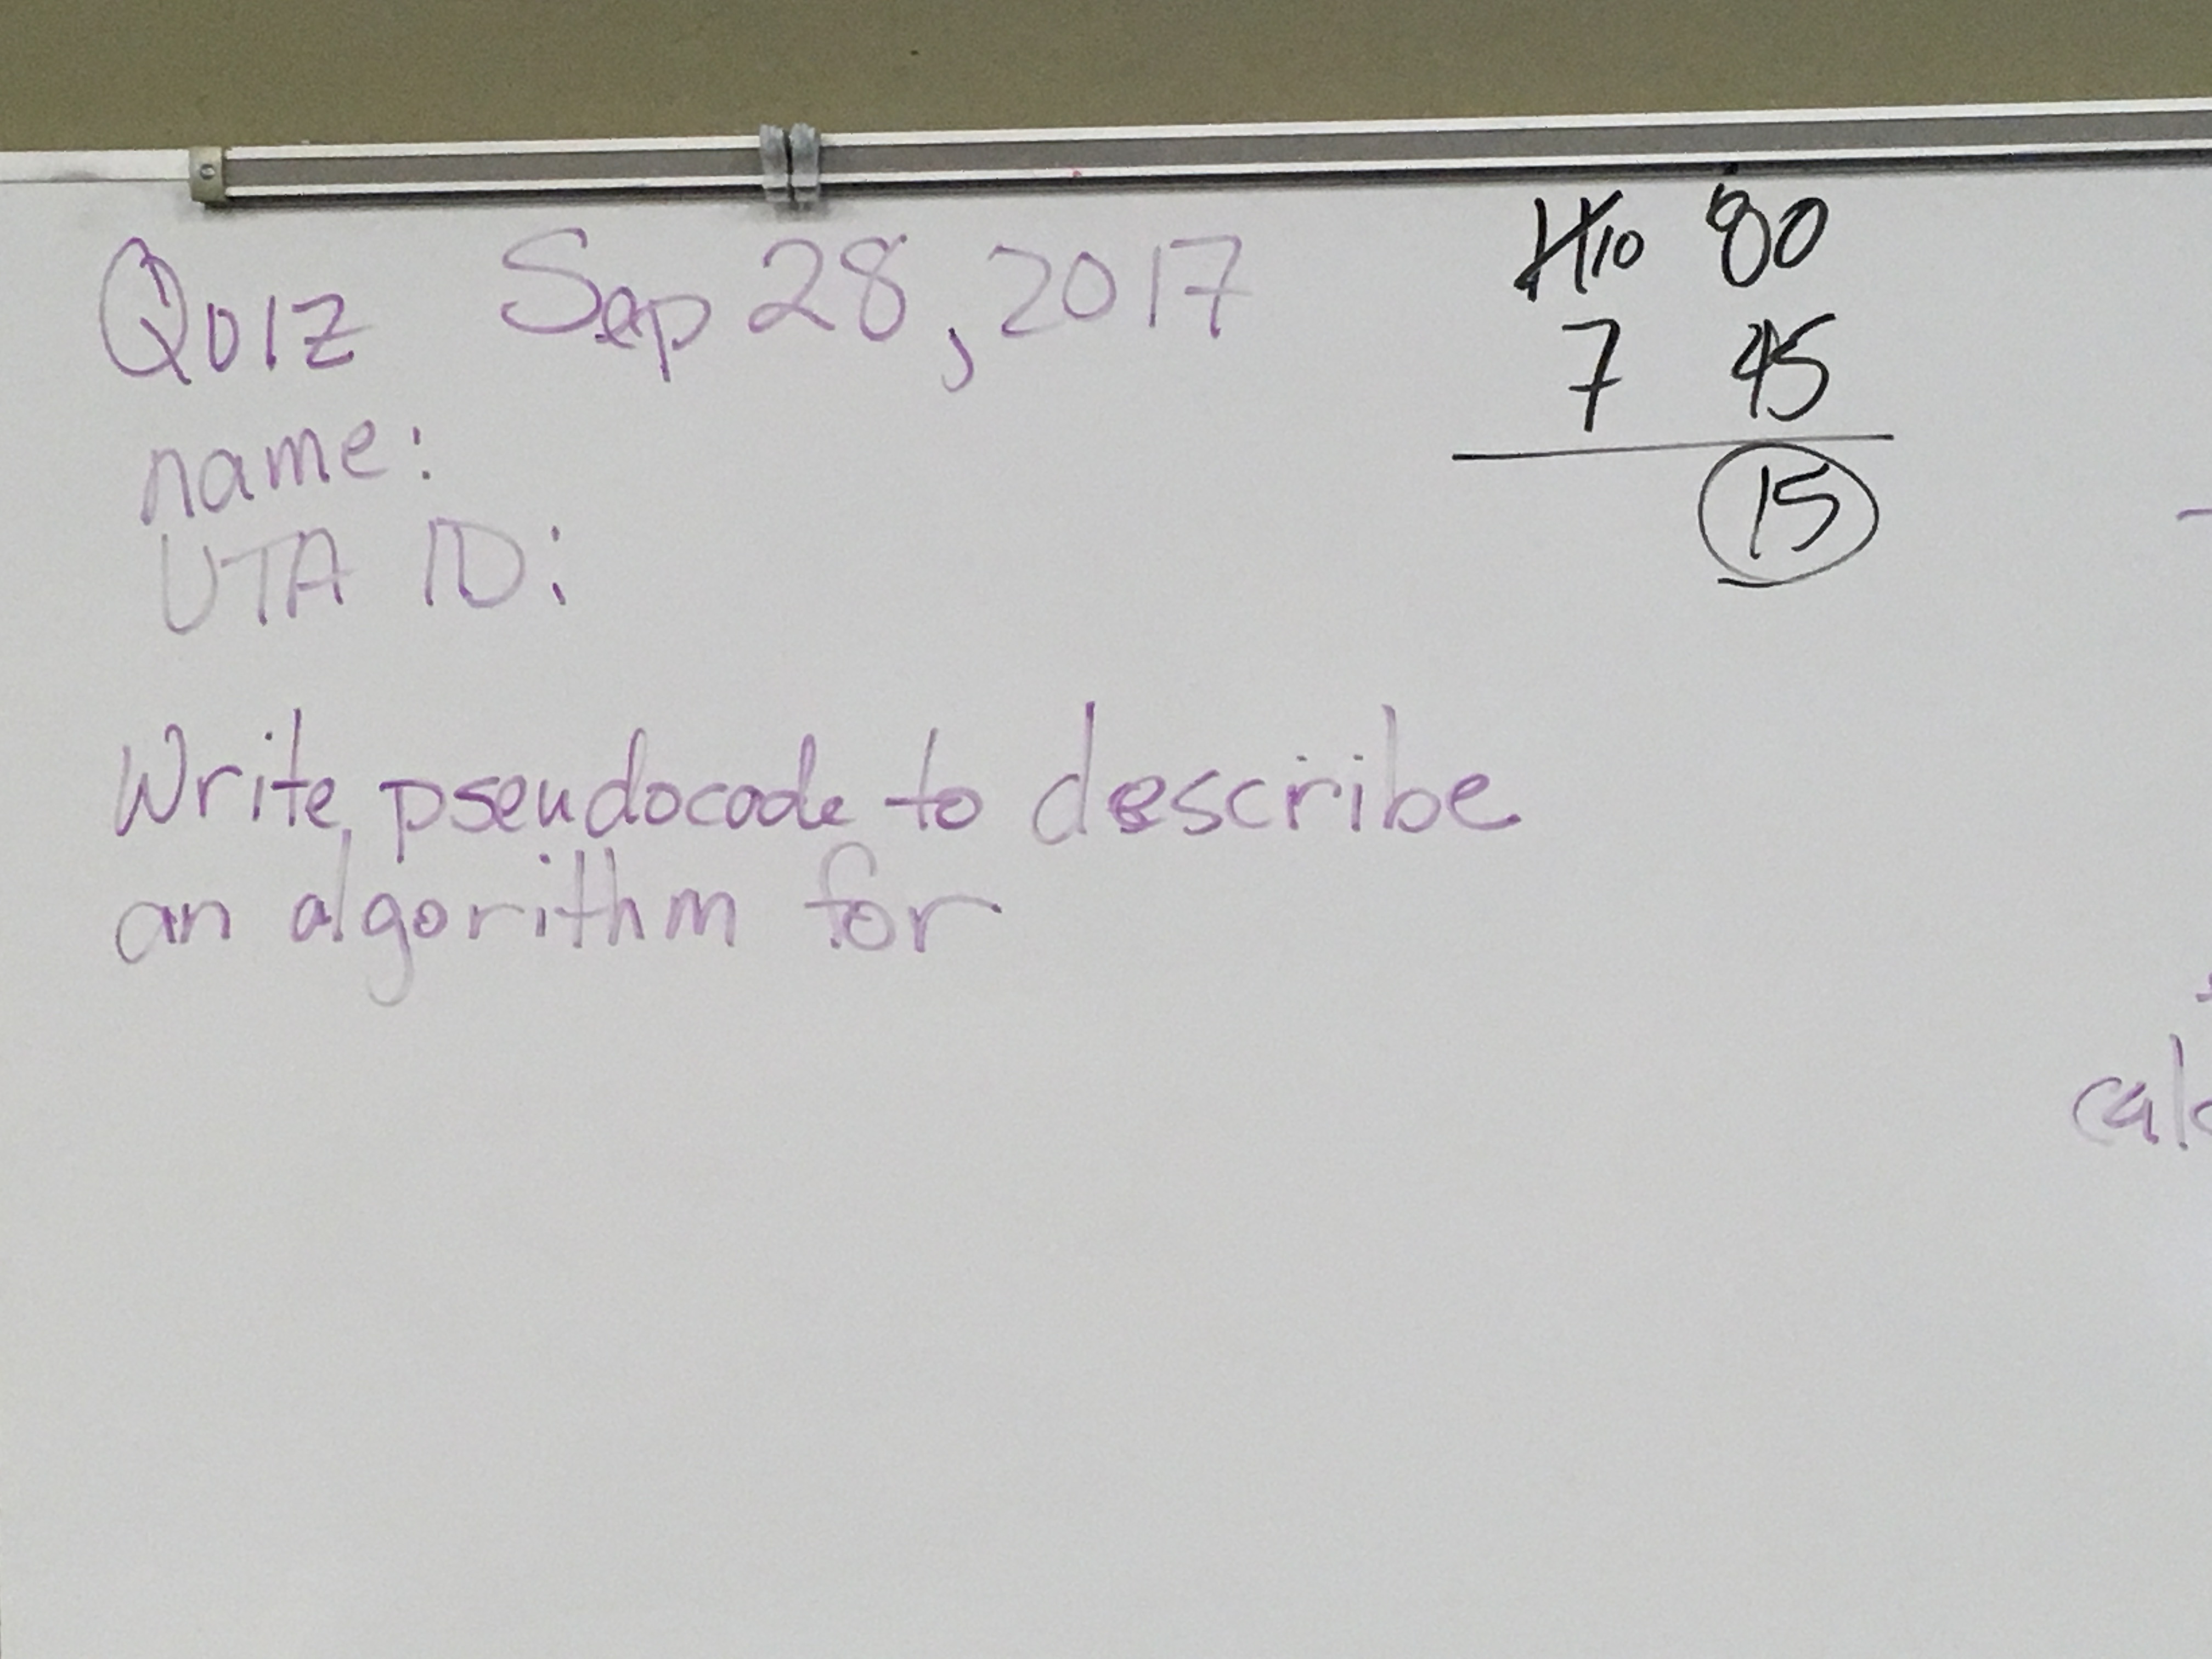 Quiz Sep 28, 2017
name:
UTA ID:
Write pseudocode to describe
an algorithm for
10 80
7 45
15